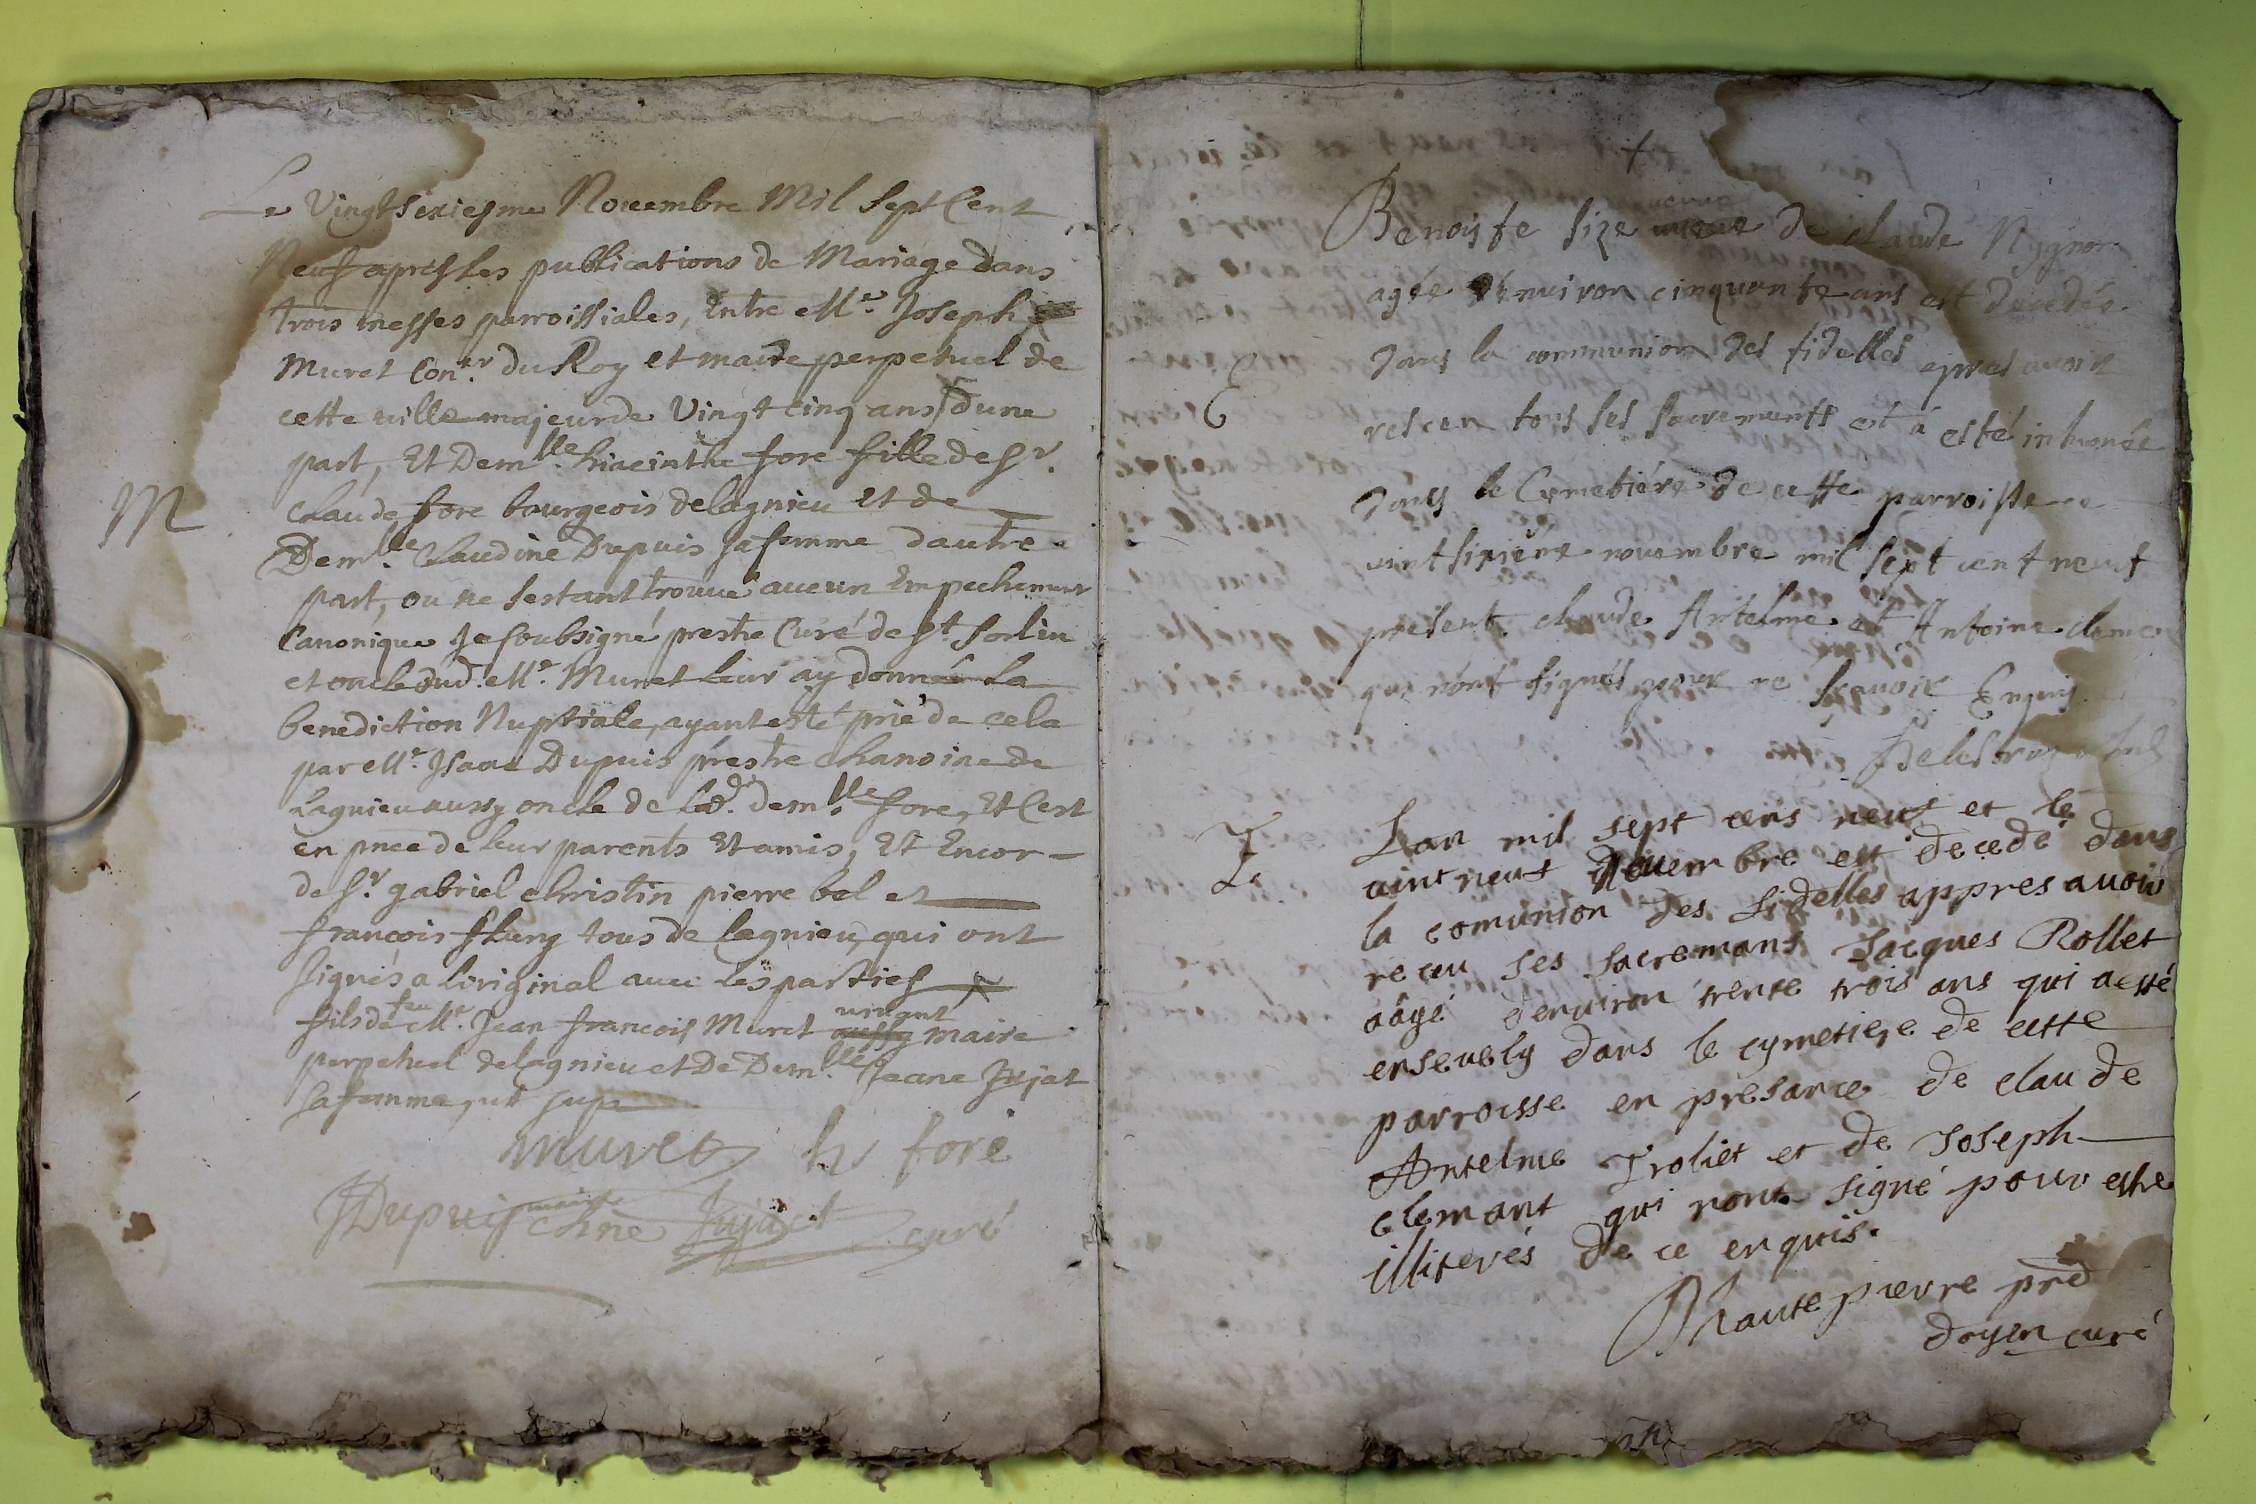 Le Vingtsexiesme Novembre Mil Sept Cent
Neuf apres les publications de Mariage dans
trois messes parroissiales, Entre Mr. Joseph
Muret Coner. du Roy et maire perpetuel de
cette ville majeur de Vingt cinq ans dune
part, Et Demlle. hiacinthe fore fille de Sr.
Claude fore bourgeois delagnieu et de
Demlle. Claudine Dupuis sa femme dautre
part, ou ne sestant trouvé aucun Empechement
Canonique Je soubsigné prestre Curé de St Sorlin
et oncle dud. Mr. Muret leur ay donné la
benediction Nuptiale, ayant esté prié de cela
par Mr. Isaac Dupuis prestre chanoine de
Lagnieu aussy oncle de lad. demlle fore, Et Cest
en pnce de leur parents Et amis, Et Encor
de Sr. gabriel christin pierre bel et
francois flury tous de lagnieu, qui ont
signés a loriginal avec les parties
fils de feu Mr. Jean francois Muret vivant maire
perpetuel delagnieu et De Demlle Jeane Jujat
sa femme, ut sup
M
muret hy fore
JDupuis chne Jujat curé
Benoiste size veuve de claude
agée d'environ cinquante ans est decedée
dans la communion des fidelles apres avoir
resceu tous ses sacrements et a esté inhumée
dans le Cymetiére de cette parroisse ce
vint sixiéme novembre mil sept cent neuf
présent claude Antelme et Antoine cleme
qui n'ont signés pour ne sçavoir Enquis
Lan mil sept cens neuf et le
vint neuf Novembre est decedé dans
la comunion des fidelles appres avoir
receu ses sacremans Jacques Rollet
aâgé denviron trente trois ans qui a esté
ensevely dans le cymetiere de cette
parroisse en presance de claude
Antelme Troliet et de Joseph
clemant qui nont signé pour estre
illiterés de ce enquis.
Dhautepierre pre
doyen curé